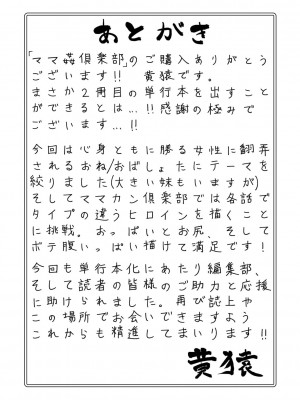 あとがき
「ママ姦倶楽部」のご購入ありがとう
ございます!! 黄猿です。
まさか2冊目の単行本を出すこと
ができるとは…!!感謝の極みで
ございます…!!
今回は心身ともに勝る女性に翻弄
されるおね/おばしょたにテーマを
絞りました(大きい妹もいますが)
そしてママカン倶楽部では各話で
タイプの違うヒロインを描くこと
に挑戦。おっぱいとお尻、そして
ボテ腹いっぱい描けて満足です!
今回も単行本化にあたり編集部、
そして読者の皆様のご助力と応援
に助けられました。再び読上や
この場所でお会いできますよう
これからも精進してまいります!!
黄猿